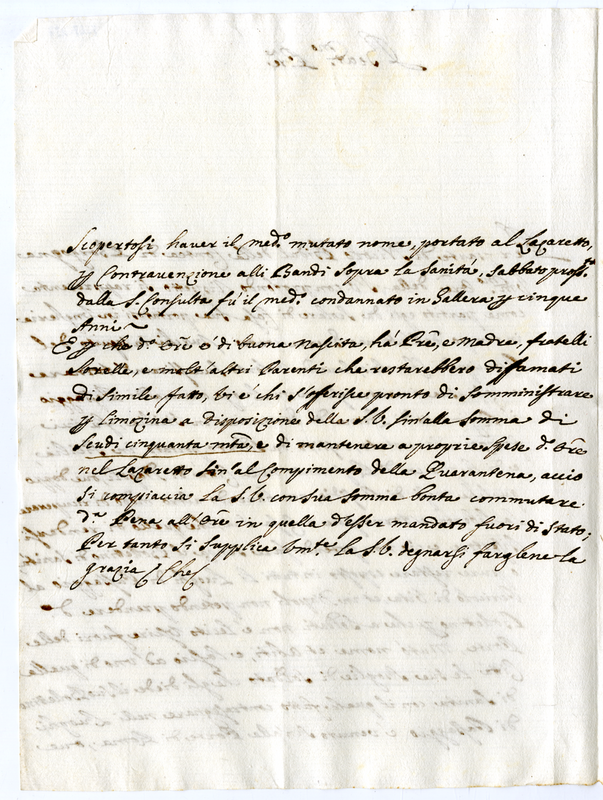 Scopertosi haver il med.º mutato nome, portato al Lazaretto,
p Contravenzione alli Bandi sopra la Sanità, Sabbato pross.º
dalla S. Consulta fù il med.º condannato in Gallera p cinque
Anni
E p che d.º Ore è di buona nascita, hà Pre, e Madre, fratelli
sorelle, e molt'altri Parenti che restarebbero diffamati
di simile fatto, vi è chi s'offerisce pronto di somministrare
p limozina a disposizione della S.V. sin'alla somma di
Scudi cinquanta mta, e di mantenere a proprie spese d.º Ore
nel Lazaretto sin'al Compimento della Quarantena, acciò
si compiaccia la S.V. con sua somma bontà commutare
d.ª Pena all'Ore in quella d'esser mandato fuori di Stato;
Per tanto si supplica um.te la S.V. degnarsi farglene la
grazia Che